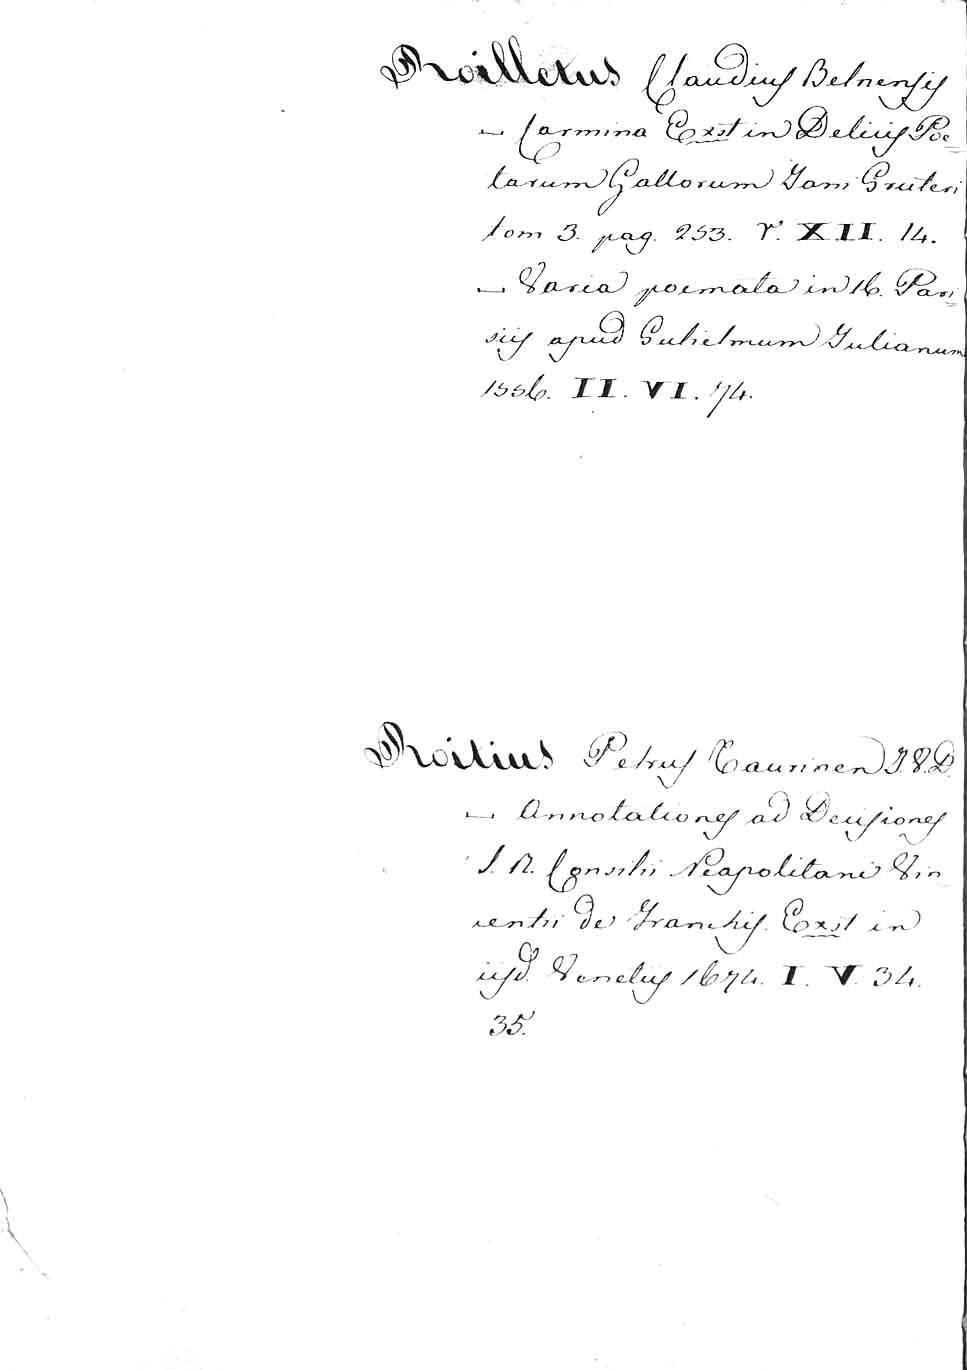 Roilletus Claudius Belnensis
— Carmina Exst in Deliciis Poe=
tarum Gallorum Jani Gruteri
tom 3. pag. 253. r. XII. 14.
— Varia poemata in 16. Pari=
siis apud Gulielmum Julianum
1556. II. VI. 74.
Roitius Petrus Taurinen J.V.D.
— Annotationes ad Decisiones
S. R. Consilii Neapolitani Vin
centii de Franchis. Exst in
iisd. Venetiis 1674. I. V. 34.
35.